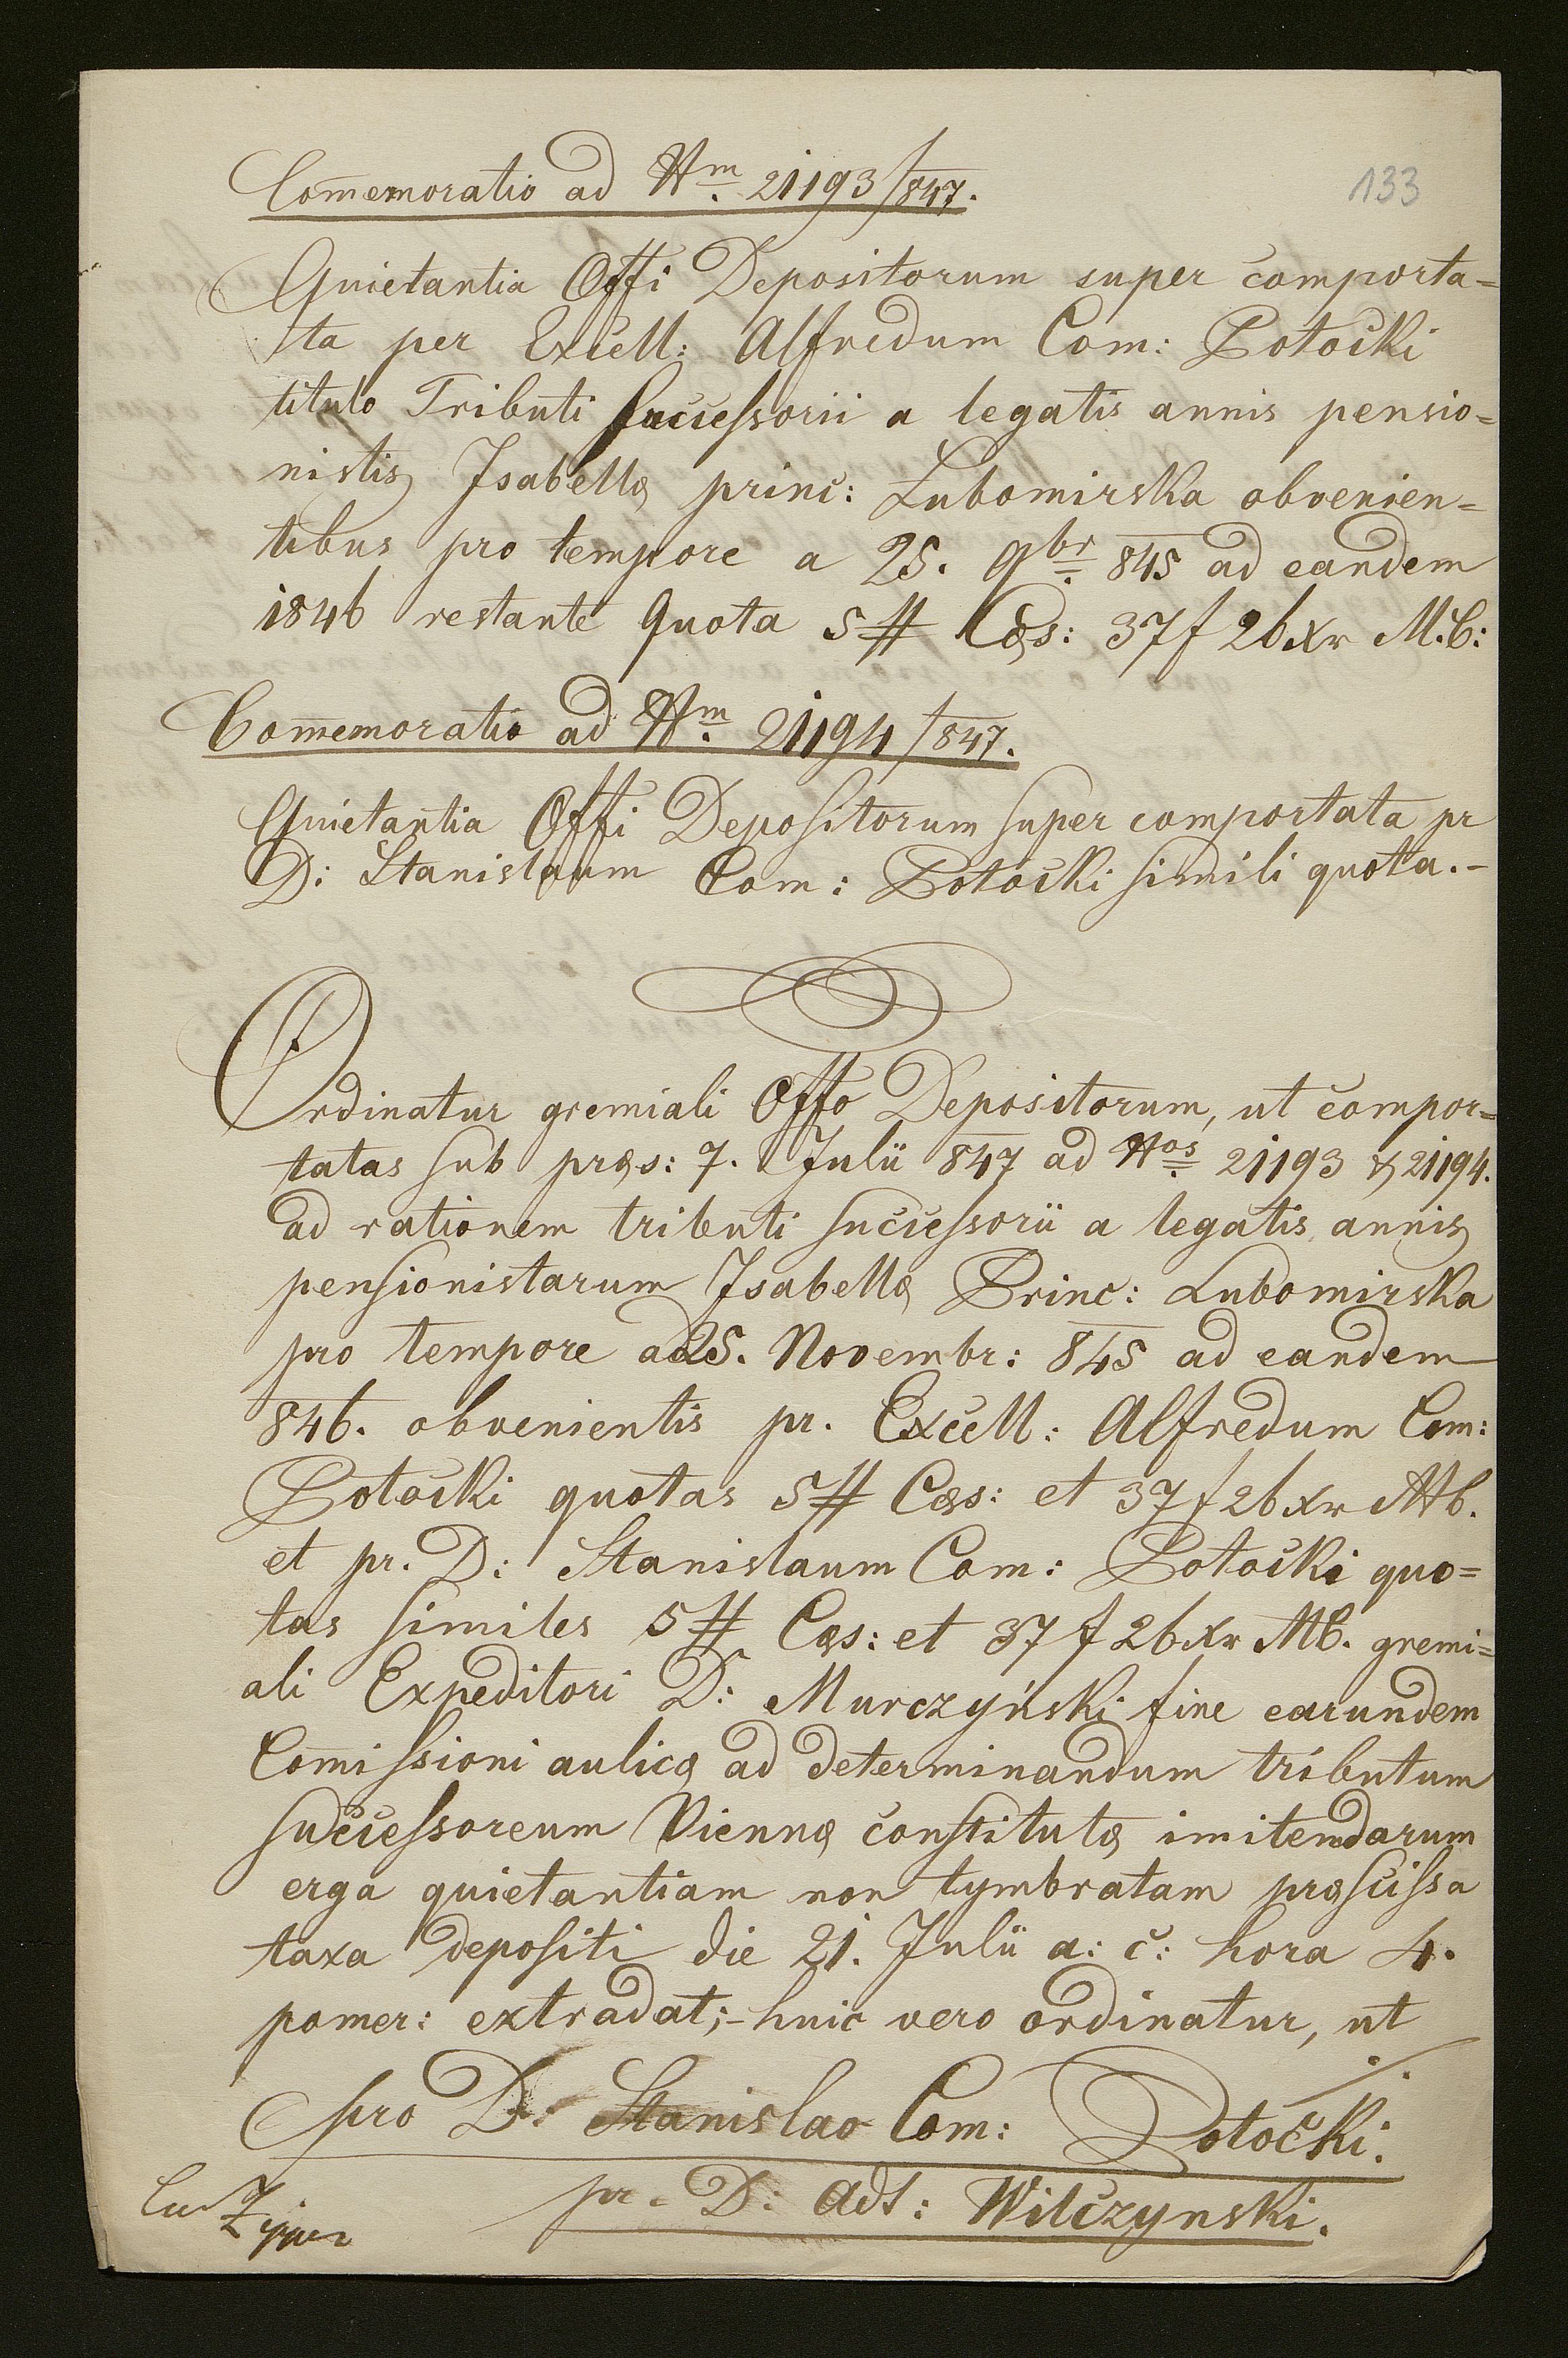 133
Com̅emoratio ad Nm. 21193/847.
Quietantia Offi Depositorum super comporta=
ta per Excell: Alfredum Com: Potocki
titulo Tributi Successorii a legatis annis pensio=
nistis Isabellæ princ: Lubomirska obvenien=
tibus pro tempore a 25. 9br. 845 ad eandem
1846 restante Quota 5# Cæs: 37f 26xr M.C:
Com̅emoratio ad Nm. 21194/847.
Quietantia Offi Depositorum super comportata pr
D: Stanislaum Com: Potocki simili quota.-
Ordinatur gremiali Offo Depositorum, ut compor=
tatas sub præs: 7. Julii 847 ad Nos. 21193 & 21194.
ad rationem tributi successorii a legatis annis
pensionistarum Isabellæ Princ: Lubomirska
pro tempore a 25. Novembr: 845 ad eandem
846. obvenientis pr. Excell: Alfredum Com:
Potocki quotas 5# Cæs: et 37f 26xr MC.
et pr. D: Stanislaum Com: Potocki quo=
tas similes 5# Cæs: et 37f 26xr MC. gremi=
ali Expeditori D: Murczyński fine earundem
Com̅issioni aulicæ ad determinandum tributum
successoreum Viennæ constitutæ imitendarum
erga quietantiam non tymbratam præscissa
taxa depositi die 21. Julii a: c: hora 4.
pomer: extradat;- huic vero ordinatur, ut
pro D: Stanislao Com: Potocki.
pr. D: Adt: Wilczynski.
Zipper